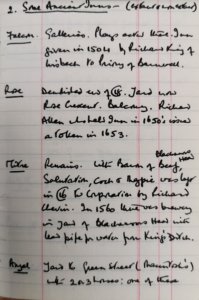 2. Some Ancient Inns -
Falcon. Galleries. Plays acted there. Inn
given in 1504 by Richard King of
Wisbech to Priory of Barnwell.
Rose Demolished end of C18. Yard now
Rose Crescent. Balcony. Richard
Allen who held Inn in 1650's issued
a token in 1653.
Mitre Remains. With Boar of Beef, Blackamoor Head
Salutation, Cock & Magpie was left
in C16 to Corporation by Richard
In 1560 there was brewery
in yard of Blackamoor Head with
lead pipe for water from King's Ditch.
Angel Yard to Green Street
with 2 or 3 houses: one of these